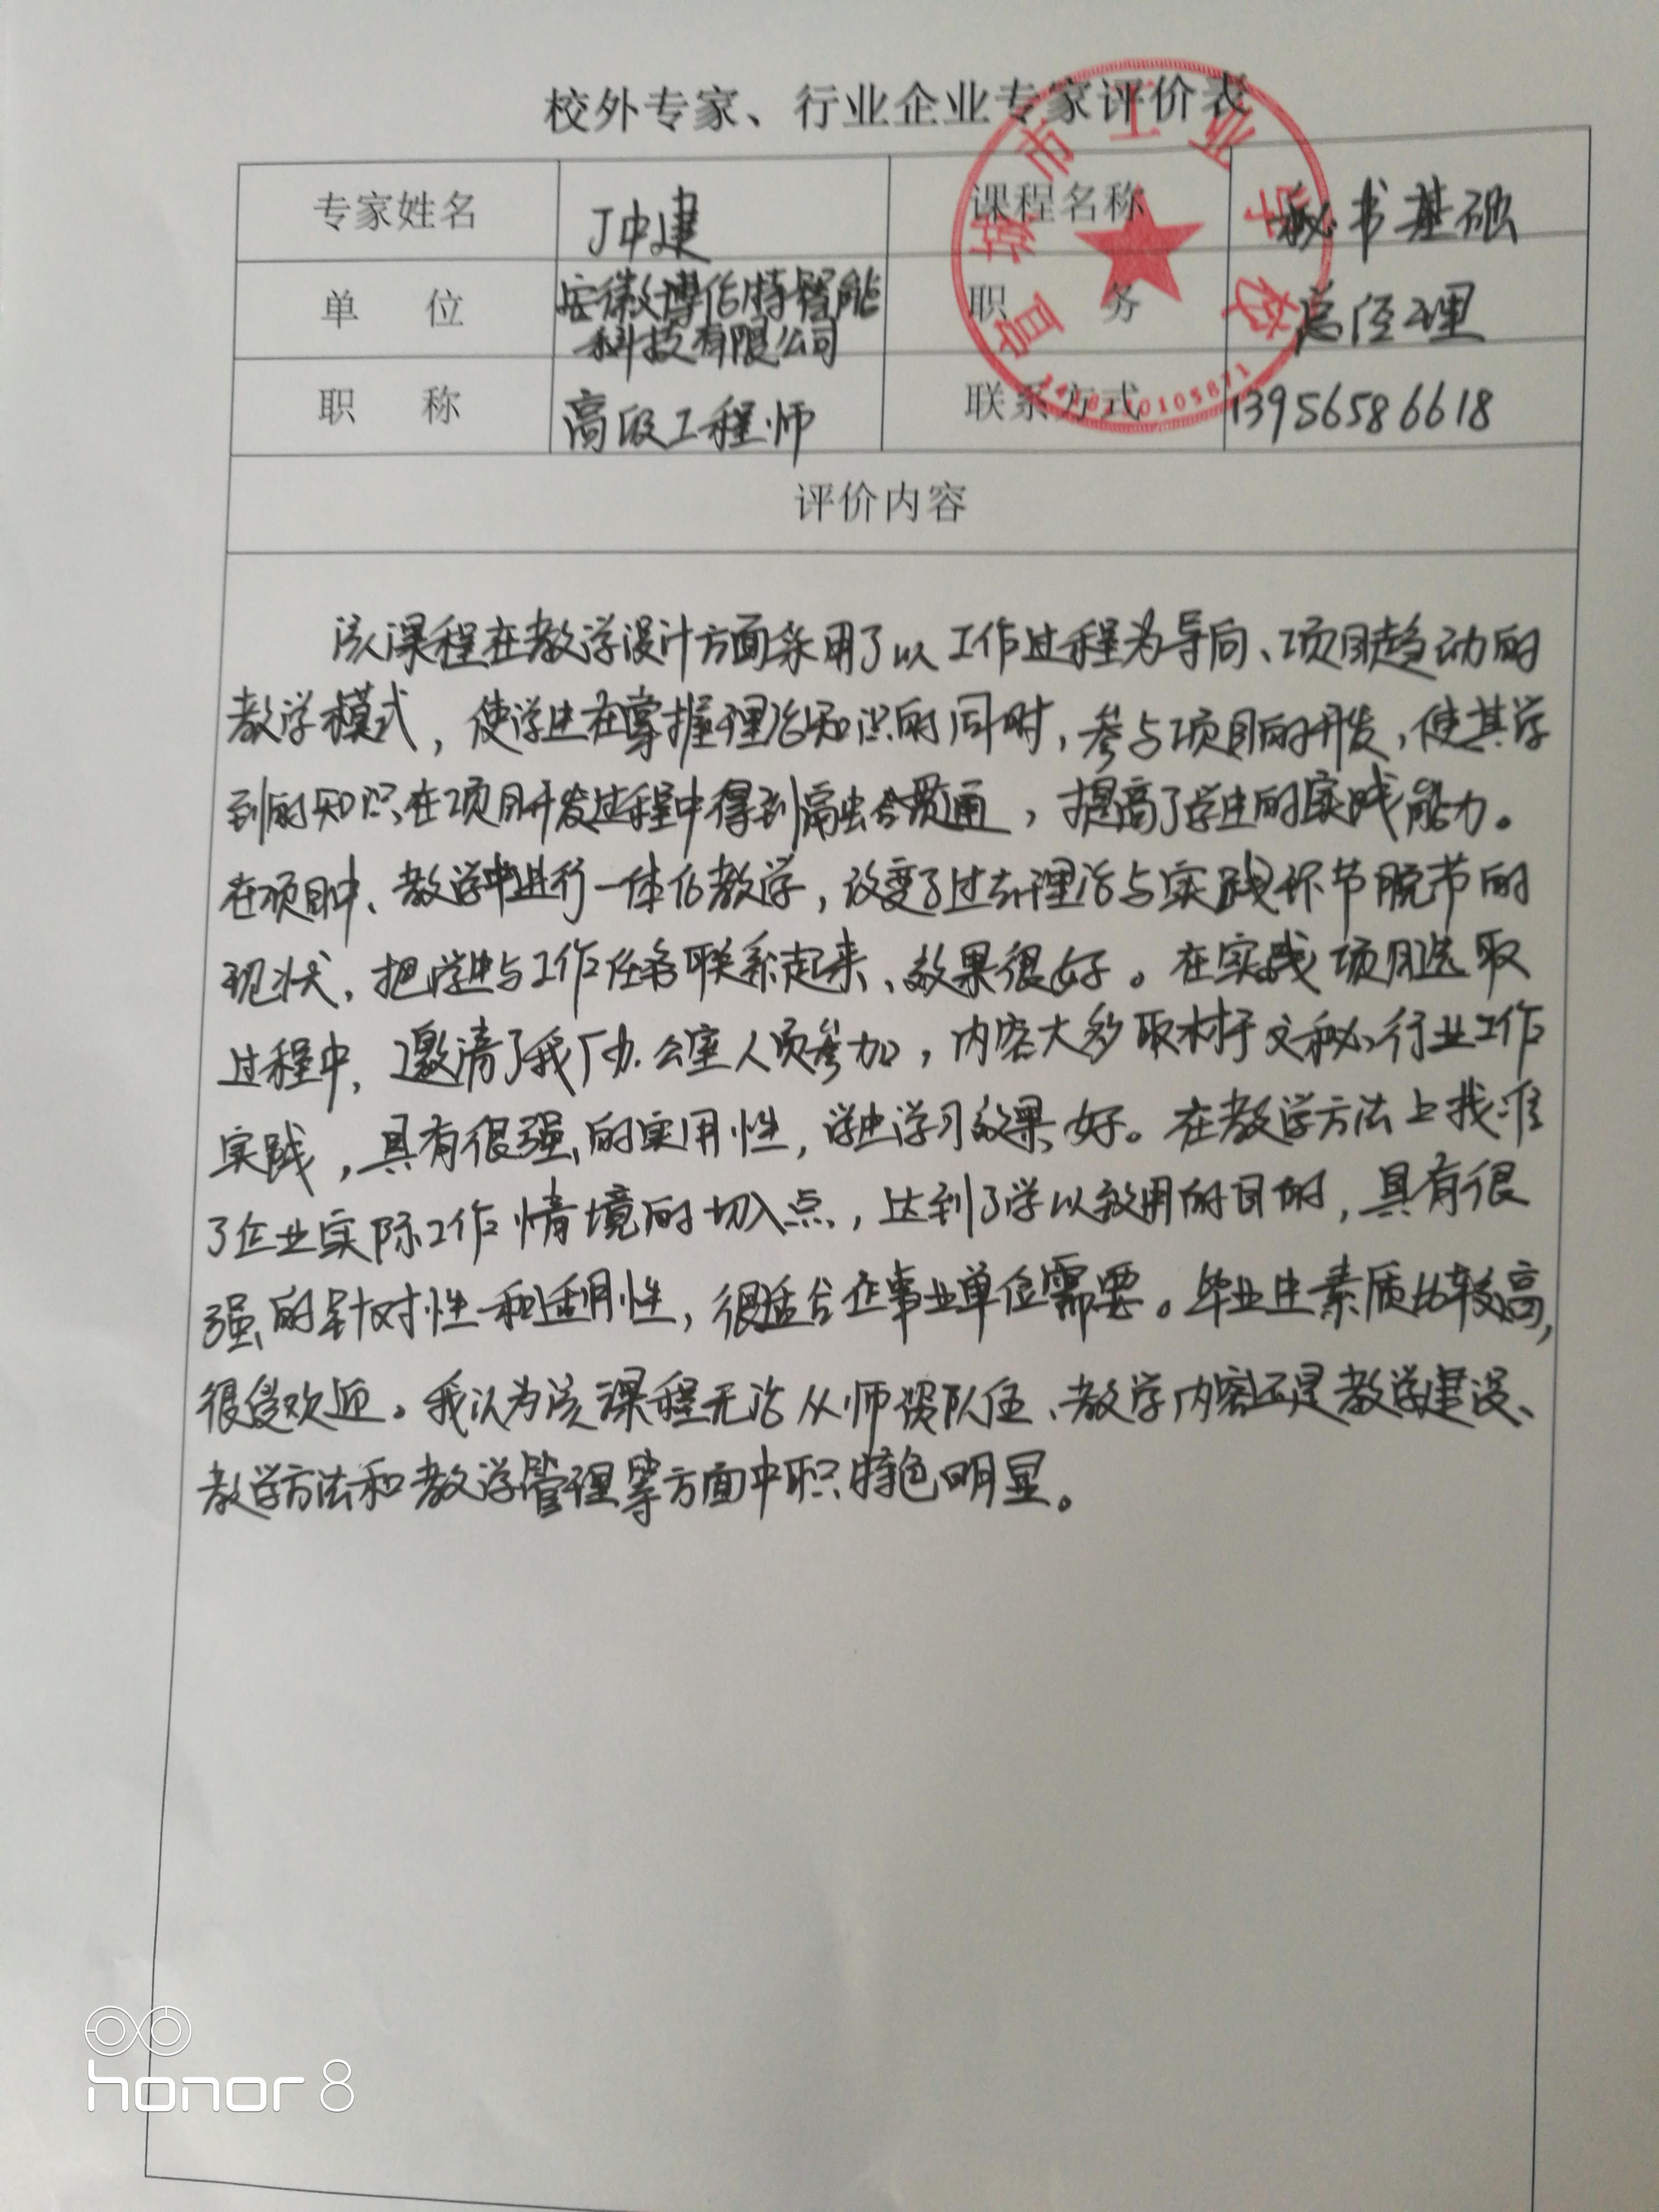 校外专家、行业企业专家评价表
专家姓名 丁冲建 课程名称 秘书基础
单 位 安徽博佰特智能科技有限公司 职 务 总经理
职 称 高级工程师 联系方式 13956586618
宣城市工业学校
评价内容
该课程在教学设计方面采用了以工作过程为导向、项目趋动的
教学模式，使学生在掌握理论知识的同时，参与项目的开发，使其学
到的知识在项目开发过程中得到融会贯通，提高了学生的实践能力。
在项目中、教学中进行一体化教学，改变了过去理论与实践环节脱节的
现状，把学生与工作任务联系起来、效果很好。在实践项目选取
过程中，邀请了我厂办公室人员参加，内容大多取材于文秘行业工作
实践，具有很强的实用性，学生学习效果好。在教学方法上找准
了企业实际工作情境的切入点，达到了学以致用的目的，具有很
强的针对性和适用性，很适合企事业单位需要。毕业生素质比较高，
很受欢迎。我认为该课程无论从师资队伍、教学内容还是教学建设、
教学方法和教学管理等方面中职特色明显。
honor 8